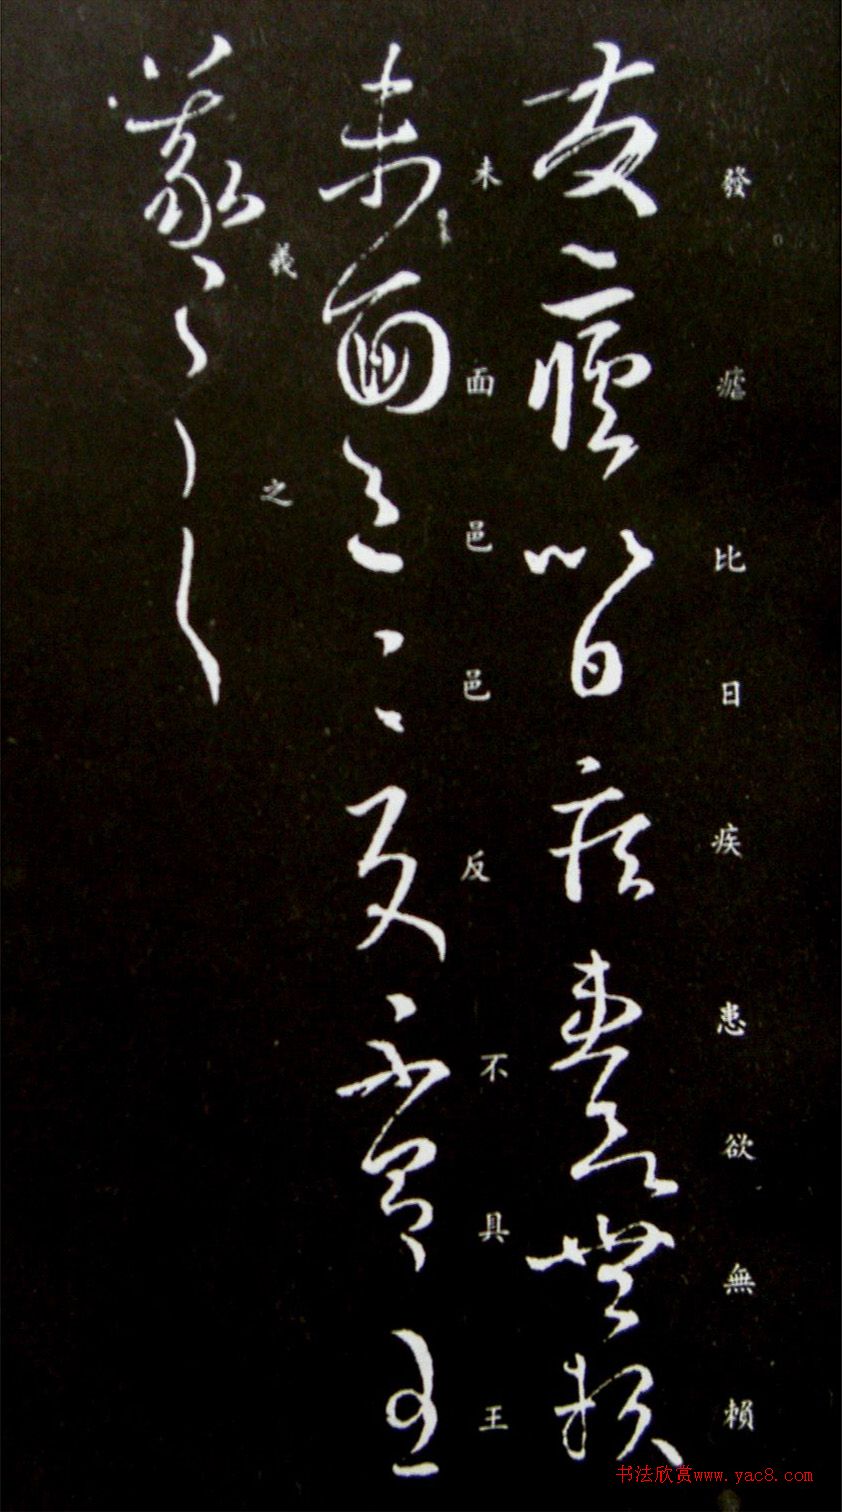 發瘧比日疾患欲無賴
未面邑邑反不具王
羲之
书法欣赏www.yac8.com